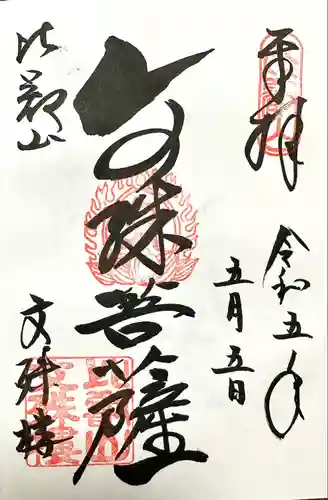 奉拝
令和五年
五月五日
文殊菩薩
比叡山
文殊楼